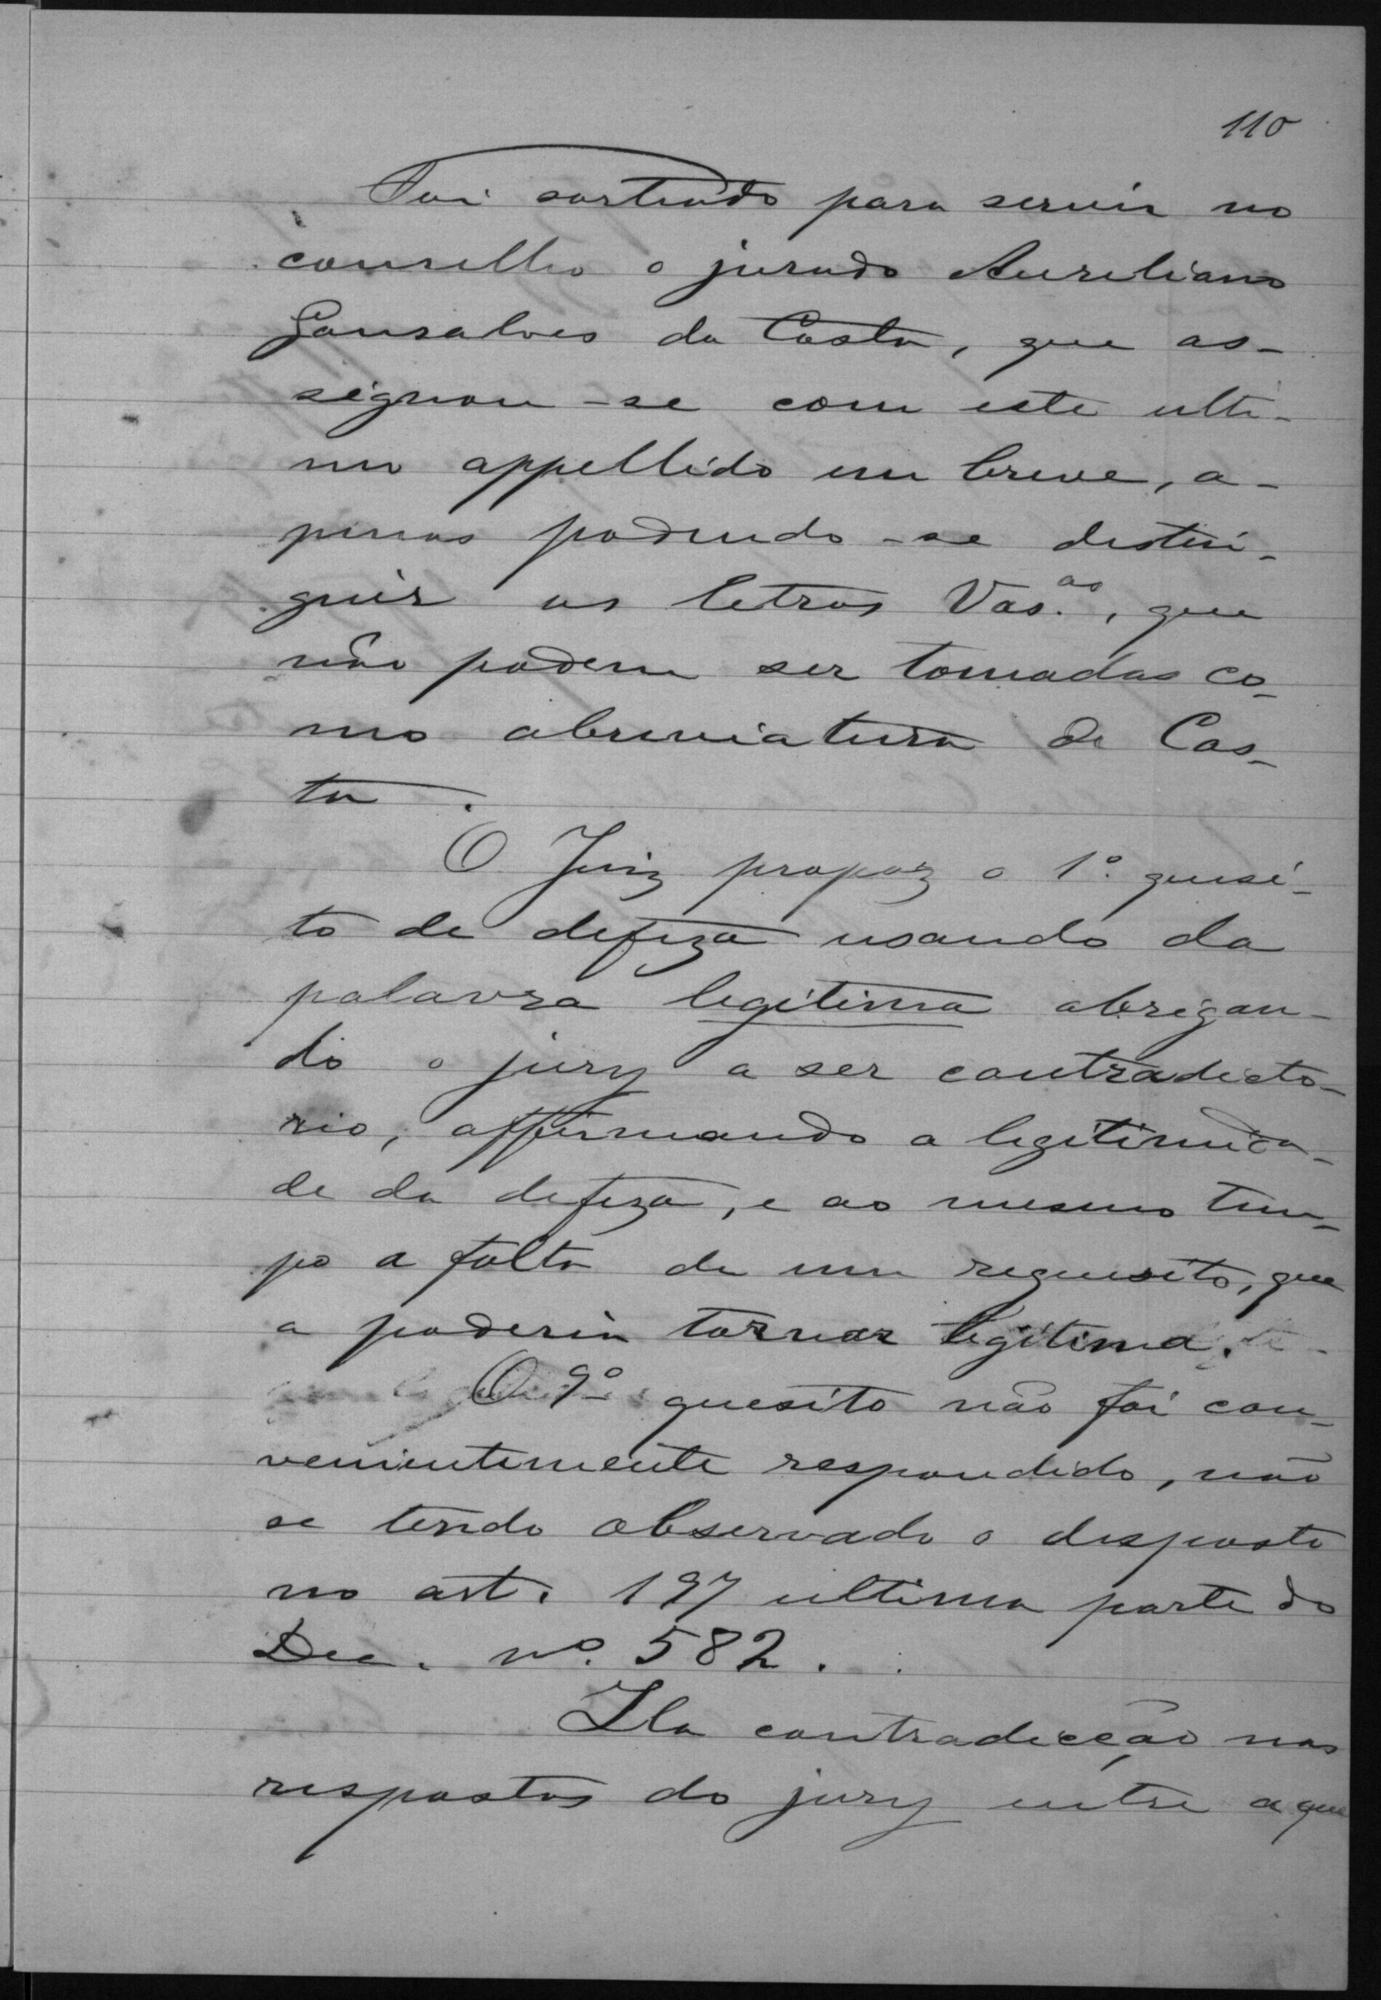 110
Foi sorteado para servir no
conselho o jurado Aureliano
Gonsalves da Costa, que as-
signou-se com este ulti-
mo appellido em breve, a-
penas podendo-se distin-
guir as letras Vas.ao, que
não podem ser tomadas co-
mo abreviatura de Cos-
ta.
O Juiz propoz o 1º quesi-
to de defeza usando da
palavra legitima obrigan-
do o jury a ser contradicto-
rio, affirmando a legitimida-
de da defeza, e ao mesmo tem-
po a falta de um requesito, que
a poderia tornar legitima.
O 9º quesito não foi con-
venientemente respondido, não
se tendo observado o disposto
no art. 197 ultima parte do
Dec. nº. 582.
Ha contradicção nas
respostas do jury entre a que